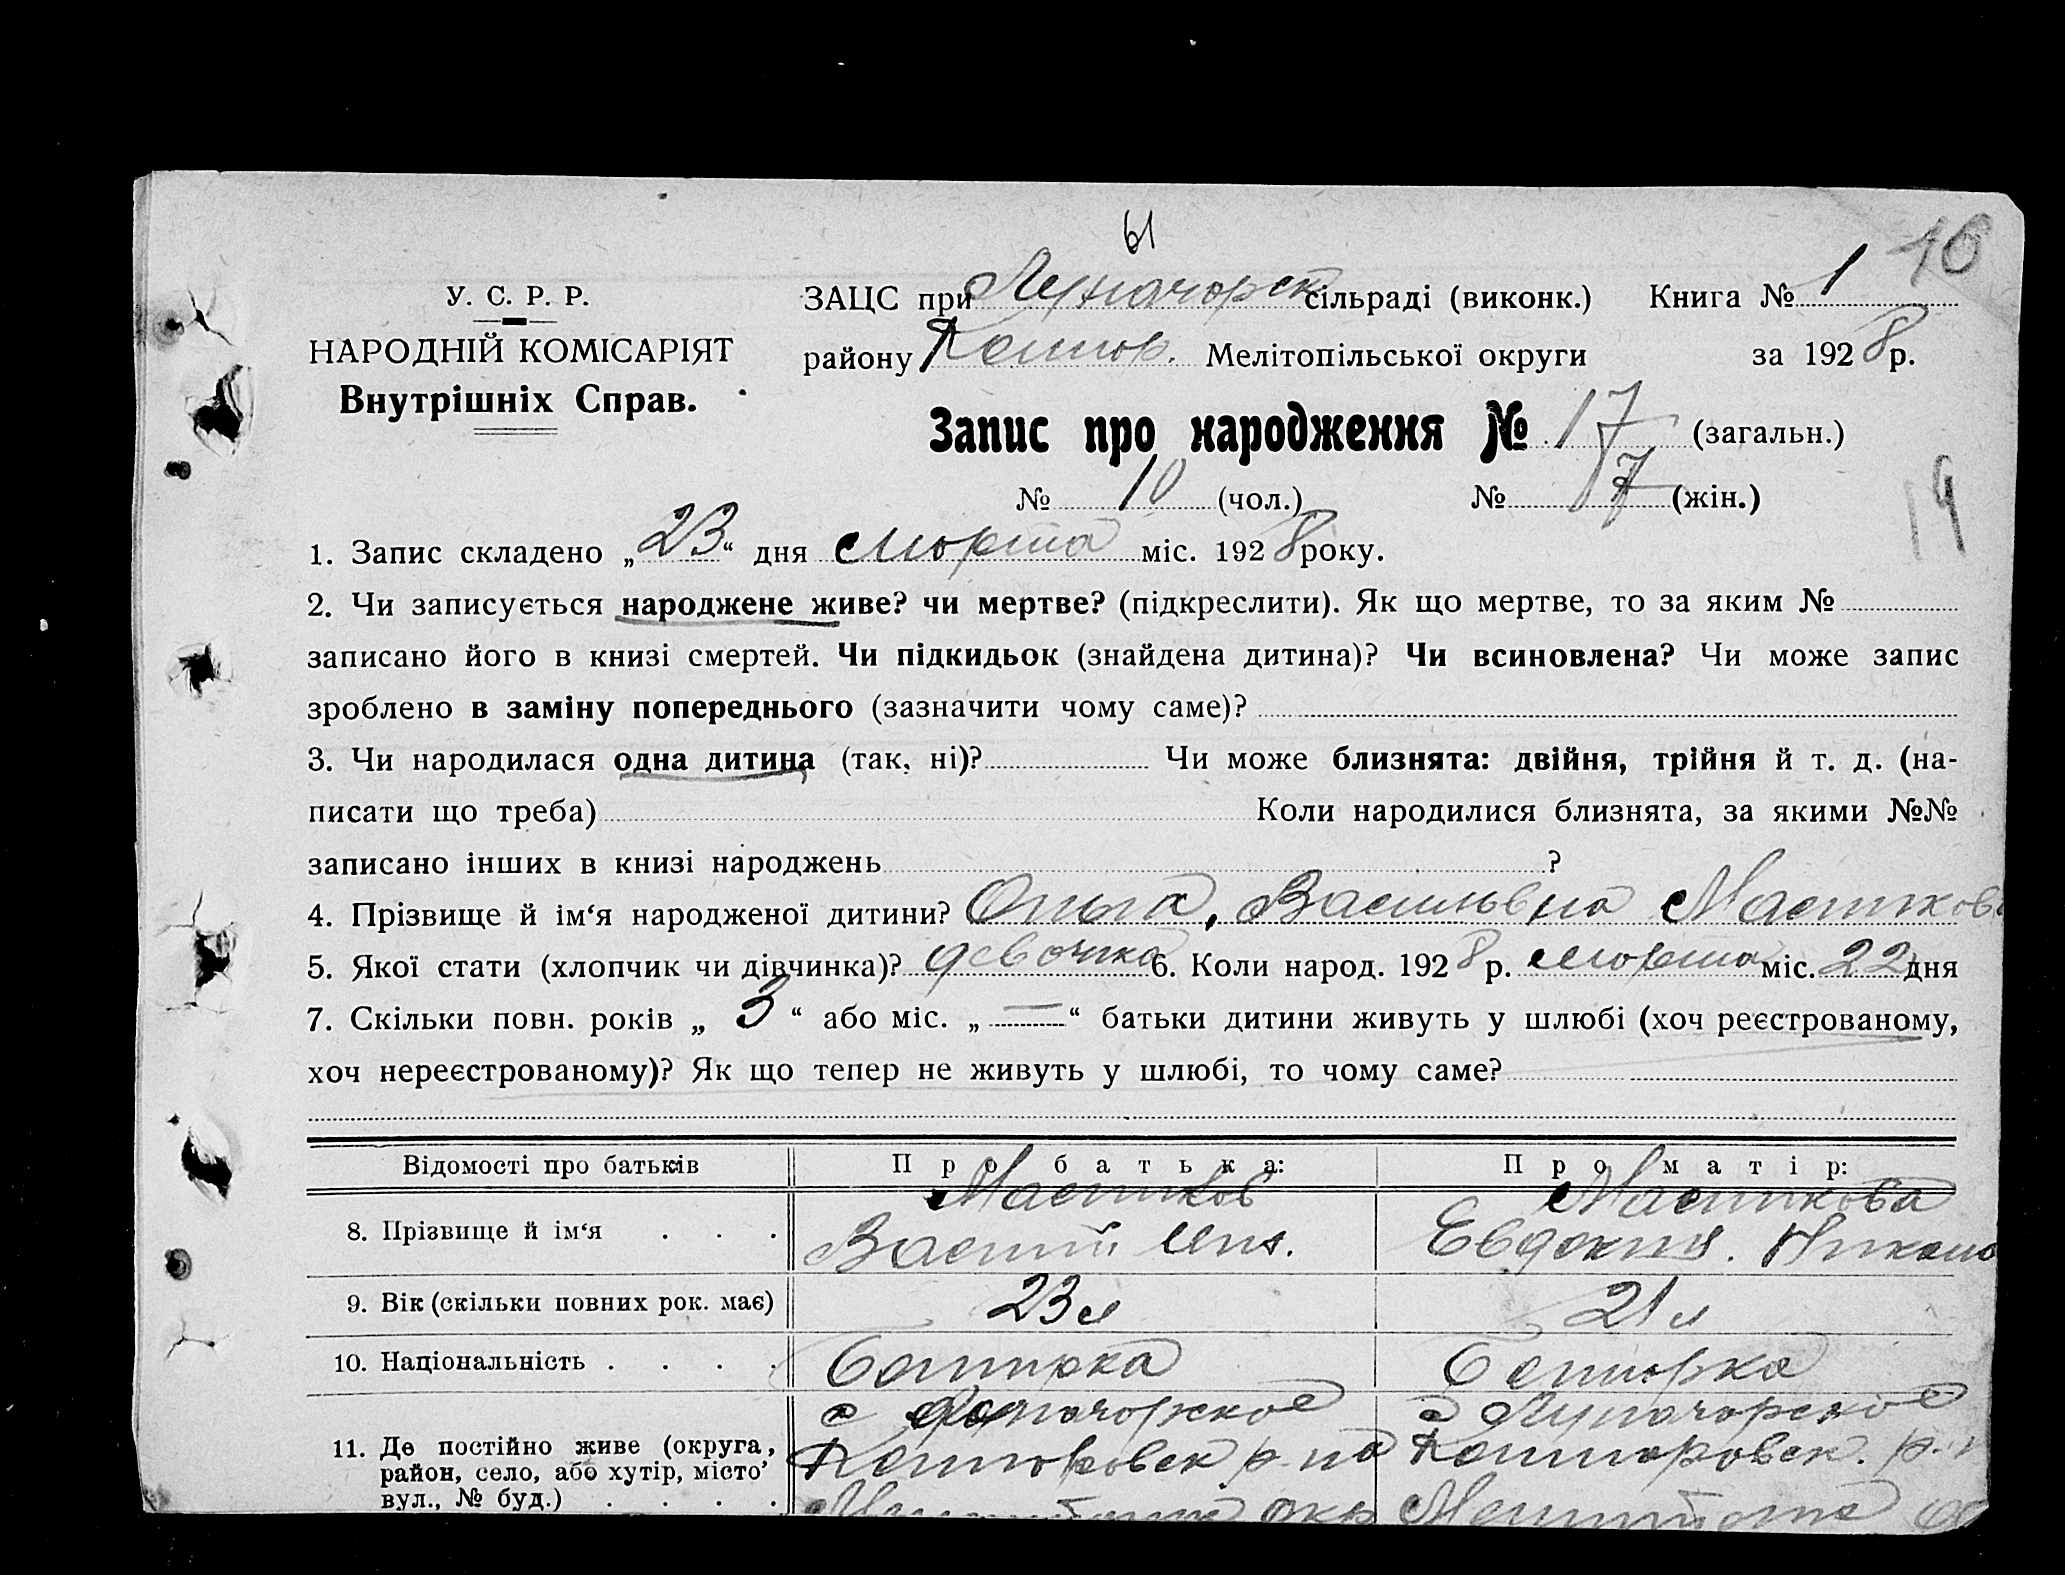 61
10
У. С. Р. Р.
НАРОДНІЙ КОМІСАРІЯТ
Внутрішніх Справ.
ЗАЦС при Луначорск сільраді (виконк.) Книга № 1
району Коцюр. Мелітопільської округи за 1928 р.
Запис про народження № 17 (загальн.)
№ 10 (чол.) № 7 (жін.)
19
1. Запис складено „23“ дня морта міс. 1928 року.
2. Чи записується народжене живе? чи мертве? (підкреслити). Як що мертве, то за яким №
записано його в книзі смертей. Чи підкидьок (знайдена дитина)? Чи всиновлена? Чи може запис
зроблено в заміну попереднього (зазначити чому саме)?
3. Чи народилася одна дитина (так, ні)? Чи може близнята: двійня, трійня й т. д. (на-
писати що треба) Коли народилися близнята, за якими №№
записано інших в книзі народжень ?
4. Прізвище й ім‘я народженої дитини? Ольга, Васильвна
5. Якої стати (хлопчик чи дівчинка)? девочка 6. Коли народ. 1928 р. морта міс. 22 дня
7. Скільки повн. років „3“ або міс. „—“ батьки дитини живуть у шлюбі (хоч реєстрованому,
хоч нереєстрованому)? Як що тепер не живуть у шлюбі, то чому саме?
Відомості про батьків Про батька: Про матір:
8. Прізвище й ім‘я Василий Евдокия.
9. Вік (скільки повних рок. має) 23 л 21 л
10. Національність
11. Де постійно живе (округа, с Луначорское с Луначорское
район, село, або хутір, місто р-на
вул., № буд.) окр